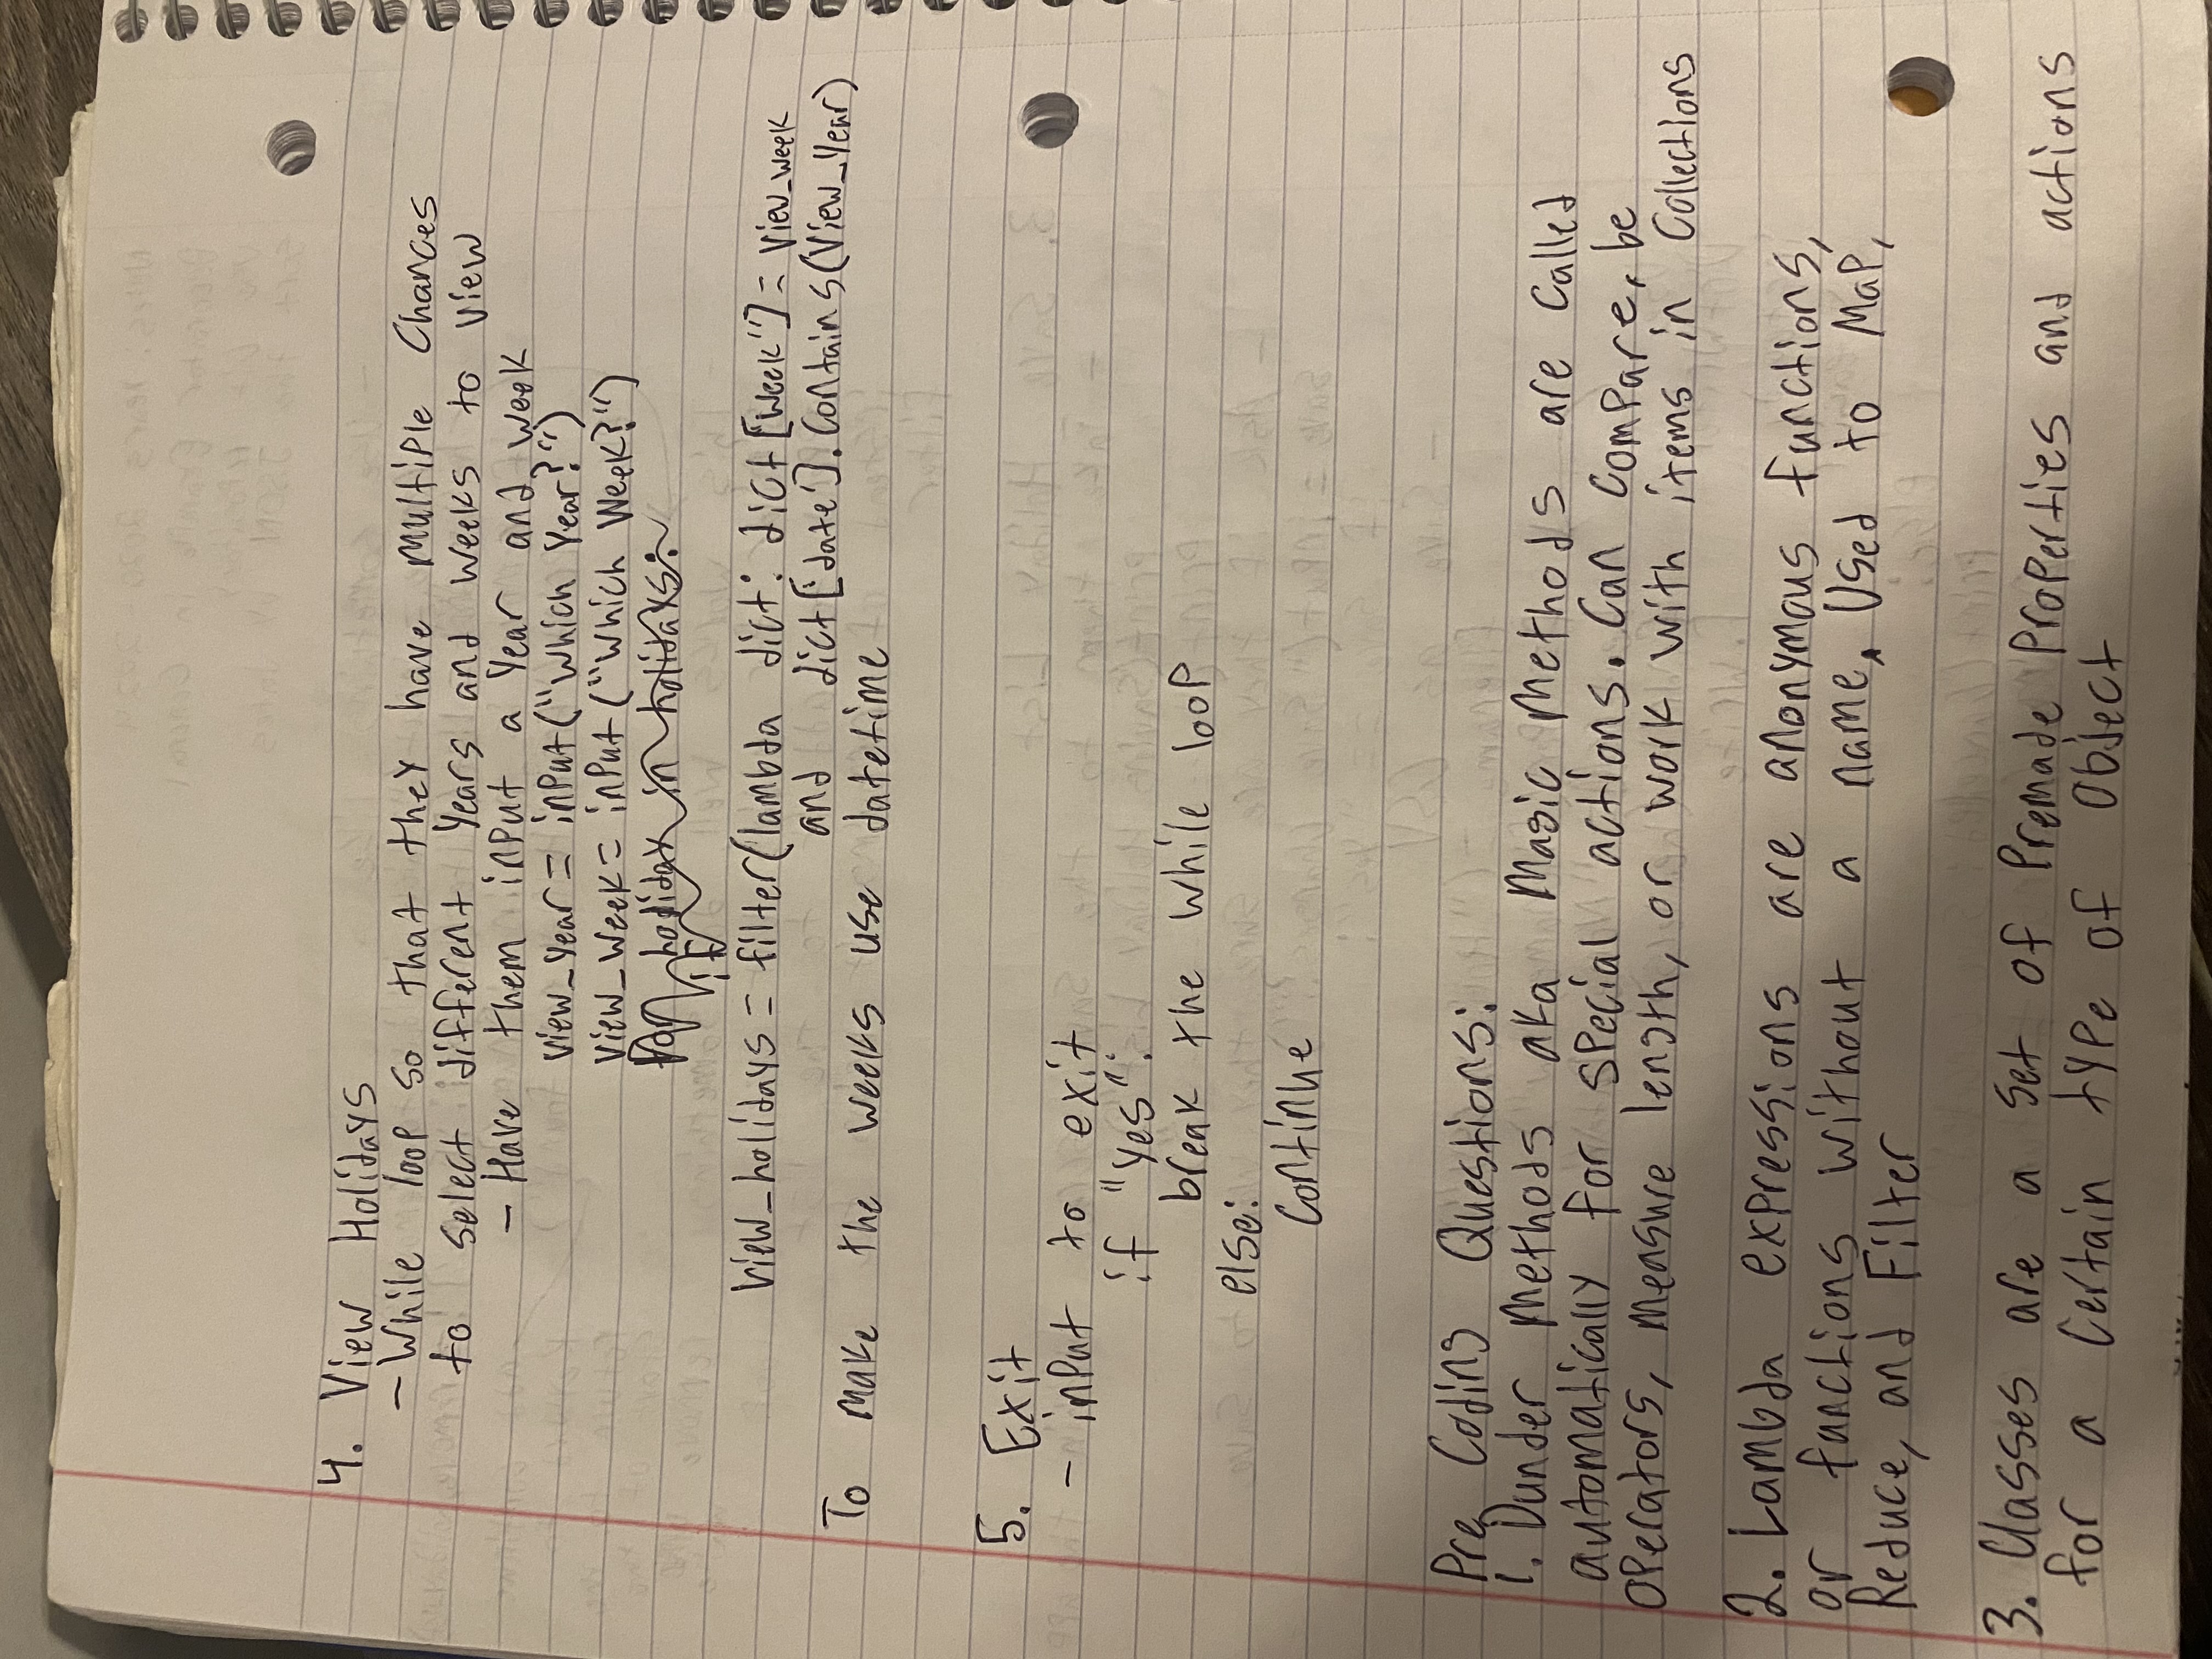 4. View Holidays
- While loop so that they have multiple chances
to select different years and weeks to view
- Have them input a year and week
view_year = input("Which Year?")
view_week = input("Which Week?")
for holiday in holidays:
if
view_holidays = filter(lambda dict: dict[week"] = view_week
and dict['date'].contains(view_year)
To make the weeks use datetime
5. Exit
- input to exit
if "yes":
break the while loop
else:
continue
Pre Coding Questions:
1. Dunder Methods aka Magic Methods are called
automatically for special actions. Can compare, be
operators, measure length, or work with items in collections
2. Lambda expressions are anonymous functions,
or functions without a name. Used to Map,
Reduce, and Filter
3. Classes are a set of premade properties and actions
for a certain type of object